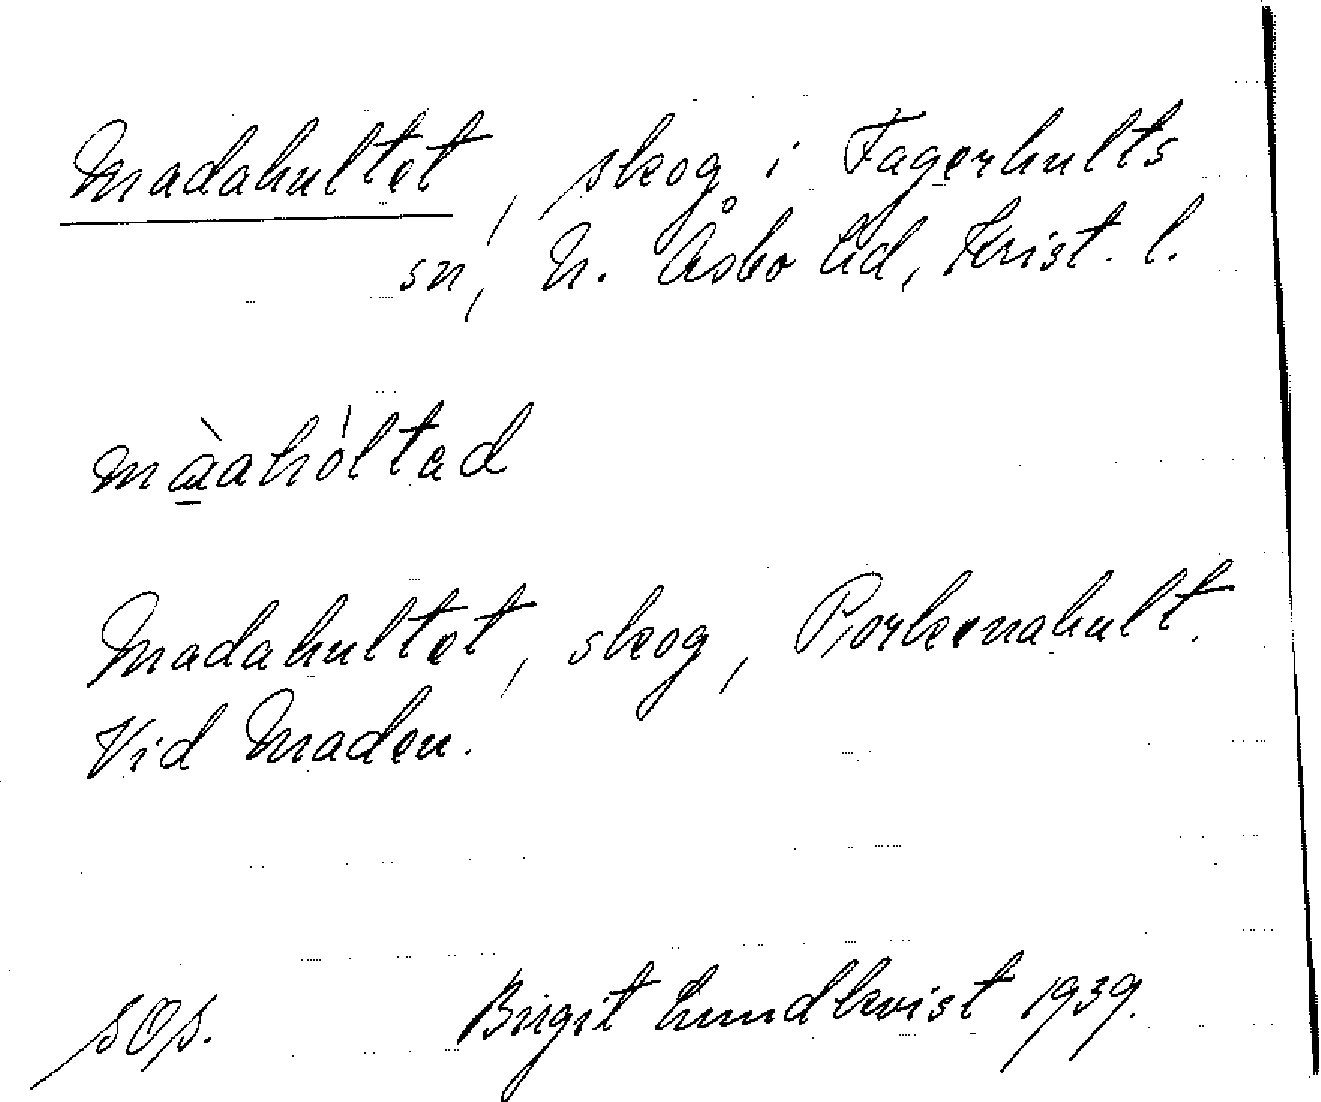 Madahultet, skog i Fagerhults
sn, N. Åsbo hd, Krist. l.
màahóltad
Madahultet, skog, Porkenahult.
Vid Maden.
Birgit Lundkvist 1939.